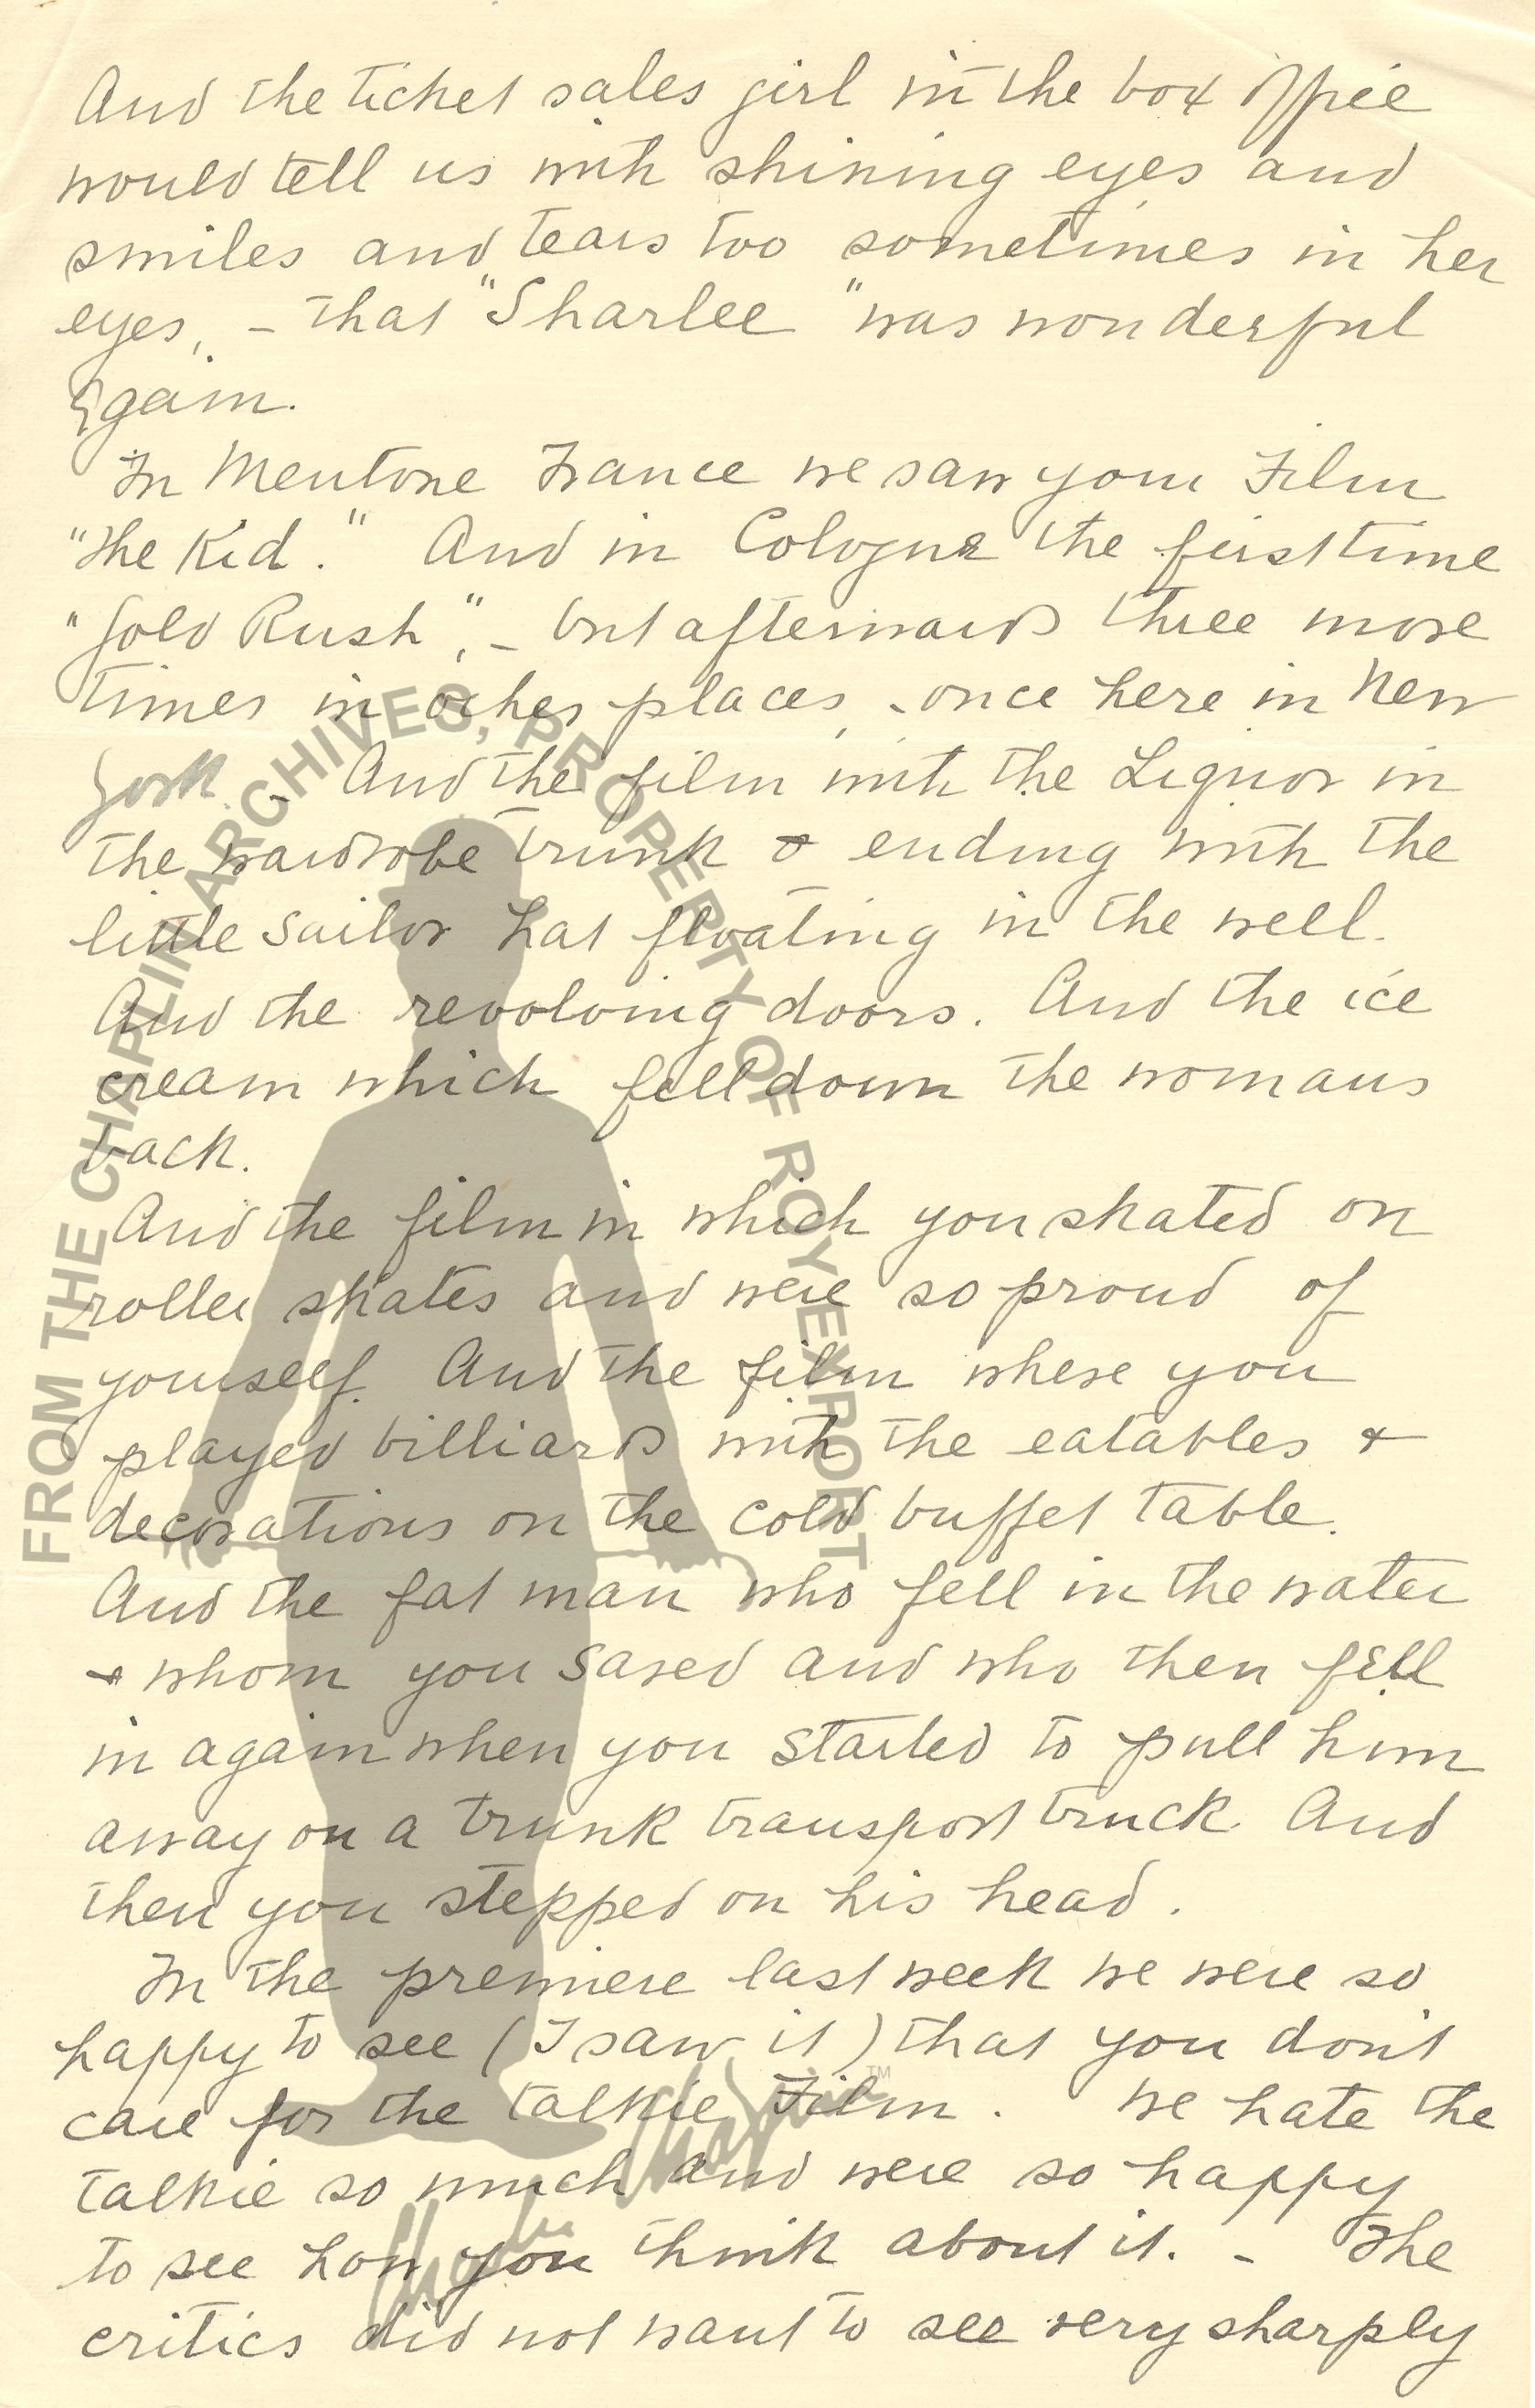 And the ticket sales girl in the box office
would tell us with shining eyes and
smiles and tears too sometimes in her
eyes, – that "Sharlee" was wonderful
again.
In Mentone France we saw your Film
"The Kid." And in Cologne the first time
"Gold Rush", – but afterwards three more
times in other places, – once here in New
York. – And the film with the Liquor in
the wardrobe trunk & ending with the
little sailor hat floating in the well.
And the revolving doors. And the ice
cream which fell down the womans
back.
And the film in which you skated on
roller skates and were so proud of
yourself. And the film where you
played billiards with the eatables &
decorations on the cold buffet table.
And the fat man who fell in the water
& whom you saved and who then fell
in again when you started to pull him
away on a trunk transport truck. And
then you stepped on his head.
In the premiere last week we were so
happy to see (I saw it) that you don't
care for the talkie Film. We hate the
talkie so much and were so happy
to see how you think about it. – The
critics did not want to see very sharply
FROM THE CHAPLIN ARCHIVES, PROPERTY OF ROY EXPORT
Charlie Chaplin™